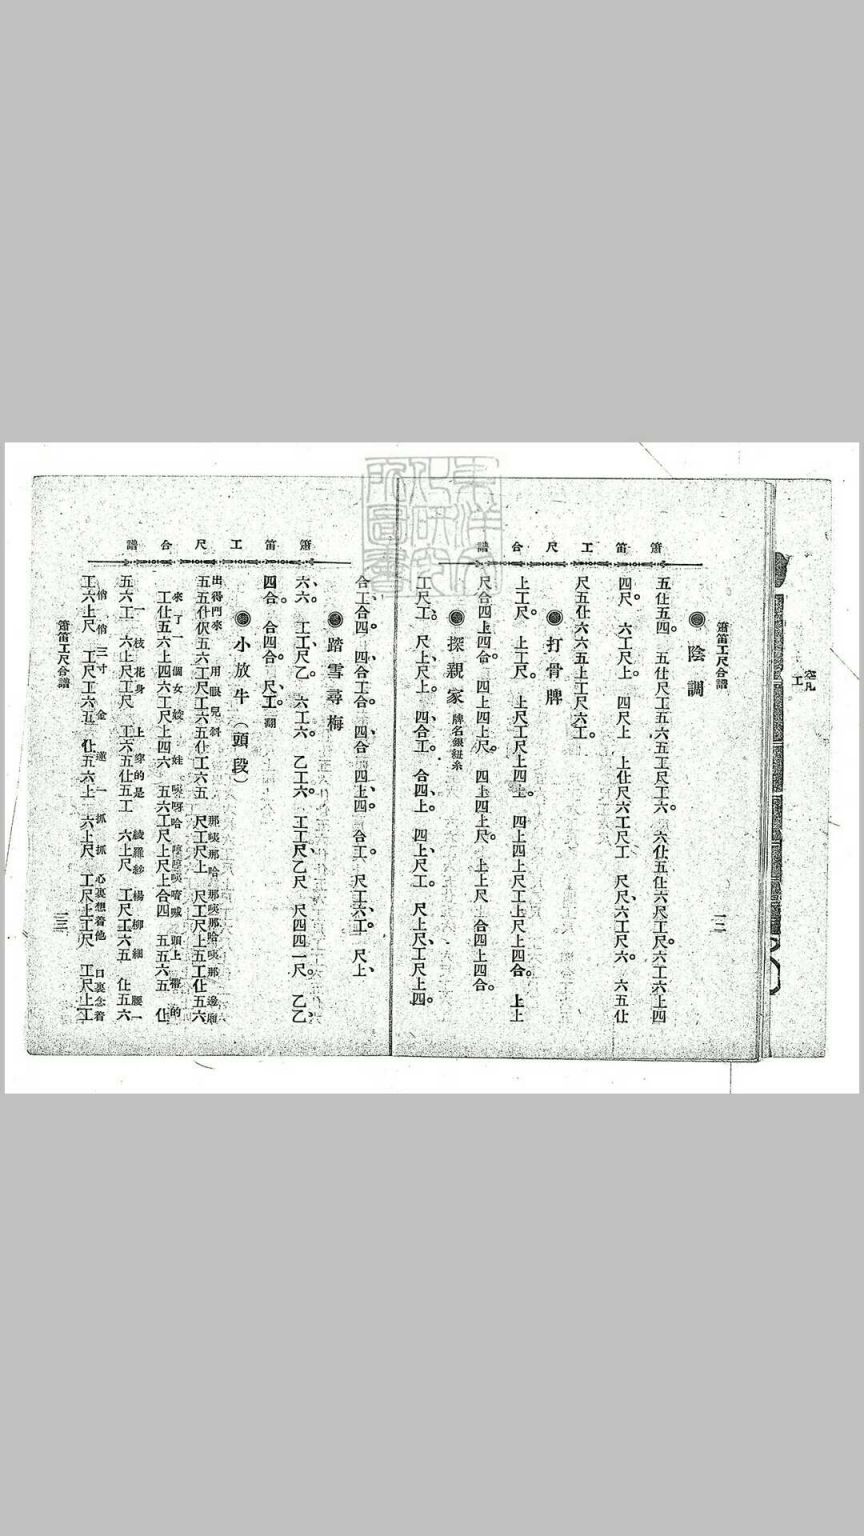 簫笛工尺合譜
簫笛工尺合譜
陰調
五仕五四　五仕尺工五六五工尺工六。　六仕五仕六尺工尺。六工六上四
四尺。　六工尺上。　四尺上　上仕尺六工尺工　尺尺、六工尺六。　六五仕
尺五仕六六五上工尺六工。
打骨牌
上工尺。　上工尺。　上尺工尺上四。　四上四上尺工上尺上四合。　上上
尺合四上四合。　四上四上尺。　四上四上尺。　上上尺　合四上四合。
探親家　牌名銀紐糸
工尺工。　尺上尺上。　四合工。　合四上。　四上尺工。　尺上尺工尺上四。
一二
簫笛工尺合譜
合工合四。　四合工合。　四合　四上四　合工。　尺工六工。　尺上
踏雪尋梅
六六。　工工尺乙。　六工六。　乙工六。　工工尺乙尺　尺四四一尺。　乙乙
四合。　合四合。　尺工。　翻
小放牛（頭段）
出得門來　用眼兒斜　那咦那哈那咦那哈咦那　邊廂
五五仕伬五六工尺工六五仕工六五　尺工尺上　尺工尺上五工仕五六
來了一個女嬌娃　頭上帶的
工仕五六上四六工尺上四六　五六工尺上尺上合四　五五六五　仕
一枝花身　上穿的是　綾羅紗　楊柳細　腰一
五六工　六上尺工尺　工六五仕五工　六上尺　工尺工六五　仕五六
悄悄三寸　金蓮一抓抓　心裏想着他　口裏念着
工六上尺　工尺工六五　仕五六上　六上尺　工尺上工尺　工尺上工
簫笛工尺合譜
一三